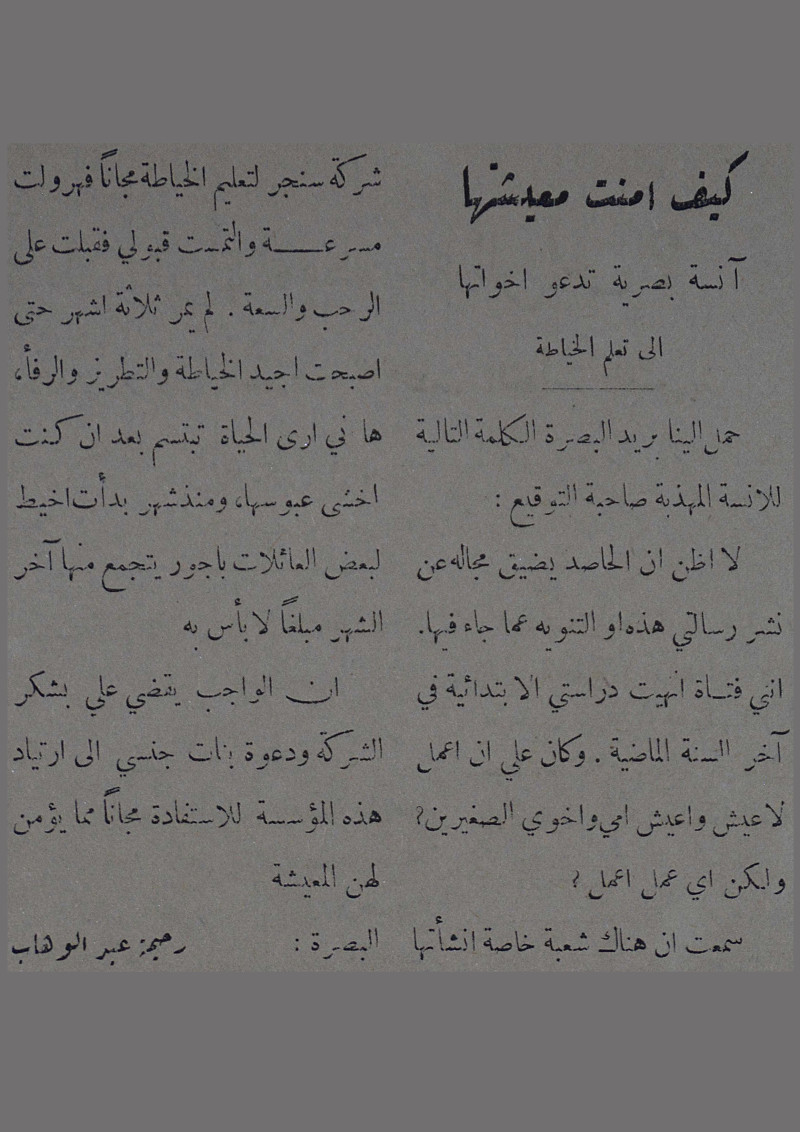 كيف امنت معيشتها
آنسة بصرية تدعو اخواتها
الى تعلم الخياطة
حمل الينا بريد البصرة الكلمة التالية
للانسة المهذبة صاحبة التوقيع :
لا اظن ان الحاصد يضيق مجاله عن
نشر رسالتي هذه او التنويه عما جاء فيها.
انني فتاة انهيت دراستي الابتدائية في
آخر السنة الماضية . وكان علي ان اعمل
لاعيش واعيش امي واخوي الصغيرين؟
ولكن اي عمل اعمل ؟
سمعت ان هناك شعبة خاصة انشأتها
شركة سنجر لتعليم الخياطة مجاناً فهرولت
مسرعة والتمست قبولي فقبلت على
الرحب والسعة . لم يمر ثلاثة اشهر حتى
اصبحت اجيد الخياطة والتطريز والرفأ،
ها ني ارى الحياة تبتسم بعد ان كنت
اخشى عبوسها، ومنذ شهر بدأت اخيط
لبعض العائلات باجور يتجمع منها آخر
الشهر مبلغاً لا بأس به
ان الواجب يقضي علي بشكر
الشركة ودعوة بنات جنسي الى ارتياد
هذه المؤسسة للاستفادة مجاناً مما يؤمن
لهن المعيشة
البصرة : رحيمة عبد الوهاب